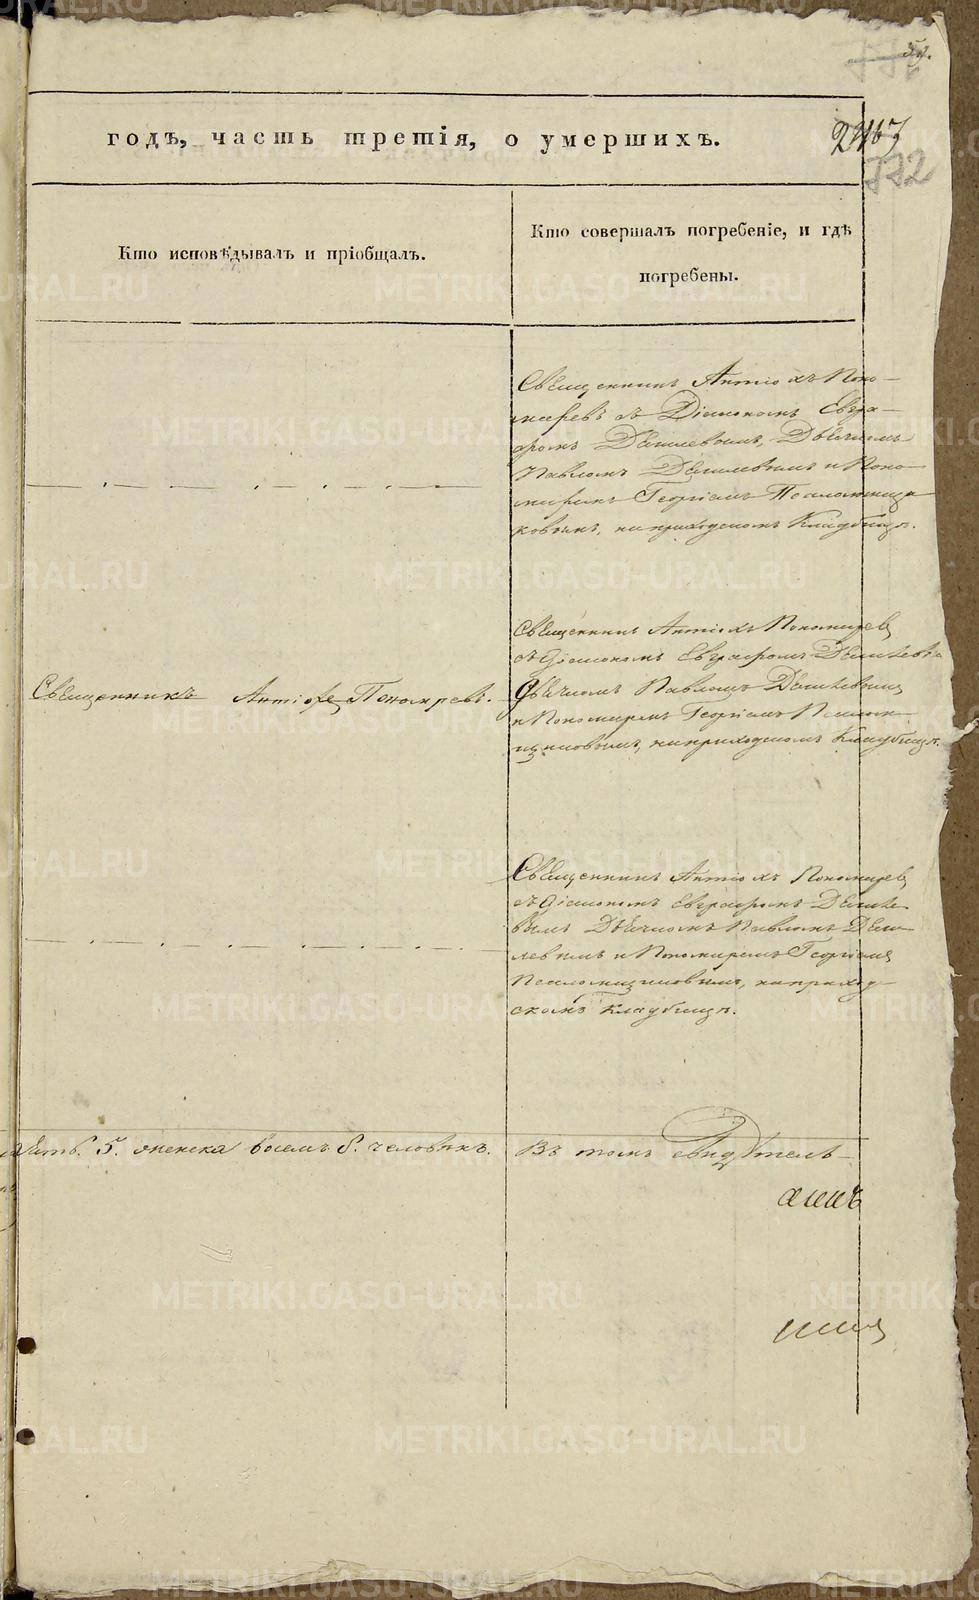 годъ, часть третія, о умершихъ.
772
Кто исповѣдывалъ и пріобщалъ.
Кто совершалъ погребеніе, и гдѣ
погребены.
Священникъ Антіохъ Поно-
маревъ съ Діакономъ Евгра-
фомъ Дѣячкомъ
Павломъ и Поно-
маремъ Георгіемъ Псаломщи
ковымъ, на приходскомъ Кладбищѣ.
Священникъ Антіохъ Пономаревъ
съ Діакономъ Евграфомъ
Священникъ Антіохъ Пономаревъ.
Дѣячкомъ Павломъ
и Пономаремъ Георгіемъ Псалом-
щиковымъ, на приходскомъ Кладбищѣ.
Священникъ Антіохъ Пономаревъ
съ Діакономъ Евграфомъ
Дѣячкомъ Павломъ
и Пономаремъ Георгіемъ
Псаломщиковымъ, на приход-
скомъ кладбищѣ.
5. женска восемь 8. человѣкъ.
Въ томъ свидѣтель-
METRIKI.GASO-URAL.RU